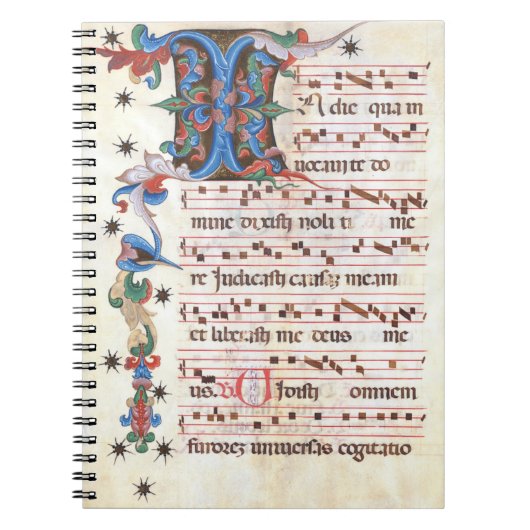 IN die qua in
uocavi te do
mine dixisti noli ti me
re Judicasti causaz meam
et liberasti me deus me
us. R Uidisti omnem
furorez universas cogitatio